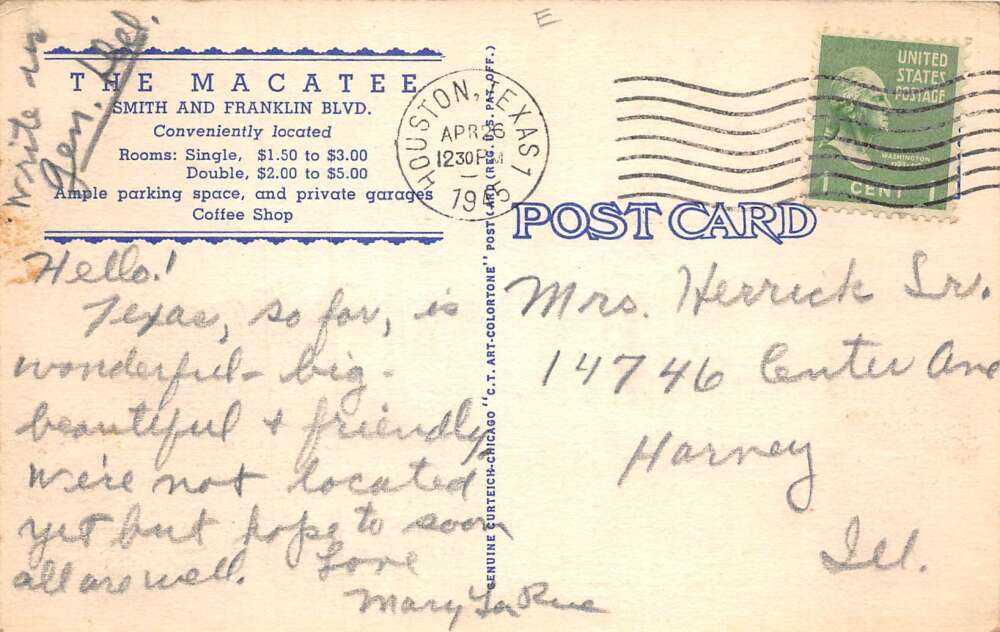 E
Write in
Gen. Del.
THE MACATEE
SMITH AND FRANKLIN BLVD.
Conveniently located
Rooms: Single, $1.50 to $3.00
Double, $2.00 to $5.00
Ample parking space, and private garages
Coffee Shop
HOUSTON, TEXAS 1
APR 26
12 30 PM
UNITED
STATES
POSTAGE
WASHINGTON
1 CENT 1
GENUINE CURTEICH-CHICAGO "C.T. ART-COLORTONE" POST CARD (REG. U.S. PAT. OFF.)
POST CARD
Hello!
Texas, so far, is
wonderful - big -
beautiful + friendly
We're not located
yet but hope to soon
all are well. Love
Mary La Rue
Mrs. Herrick Sr.
14746 Center Ave
Harvey
Ill.